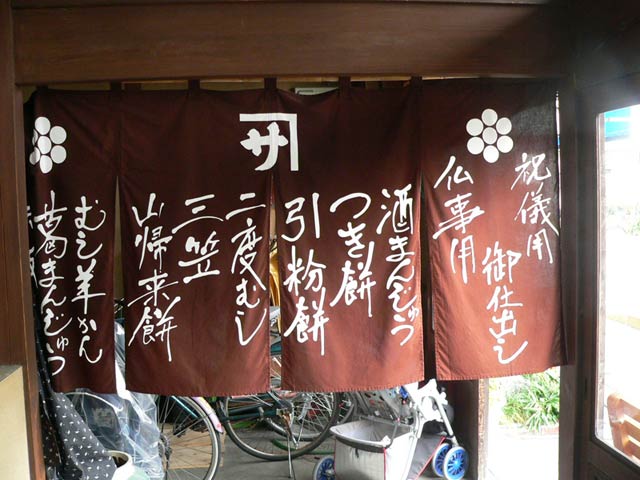 祝儀用
仏事用
御仕出し
サ
酒まんじゅう
つき餅
引粉餅
二度むし
三笠
山帰来餅
むし羊かん
葛まんじゅう